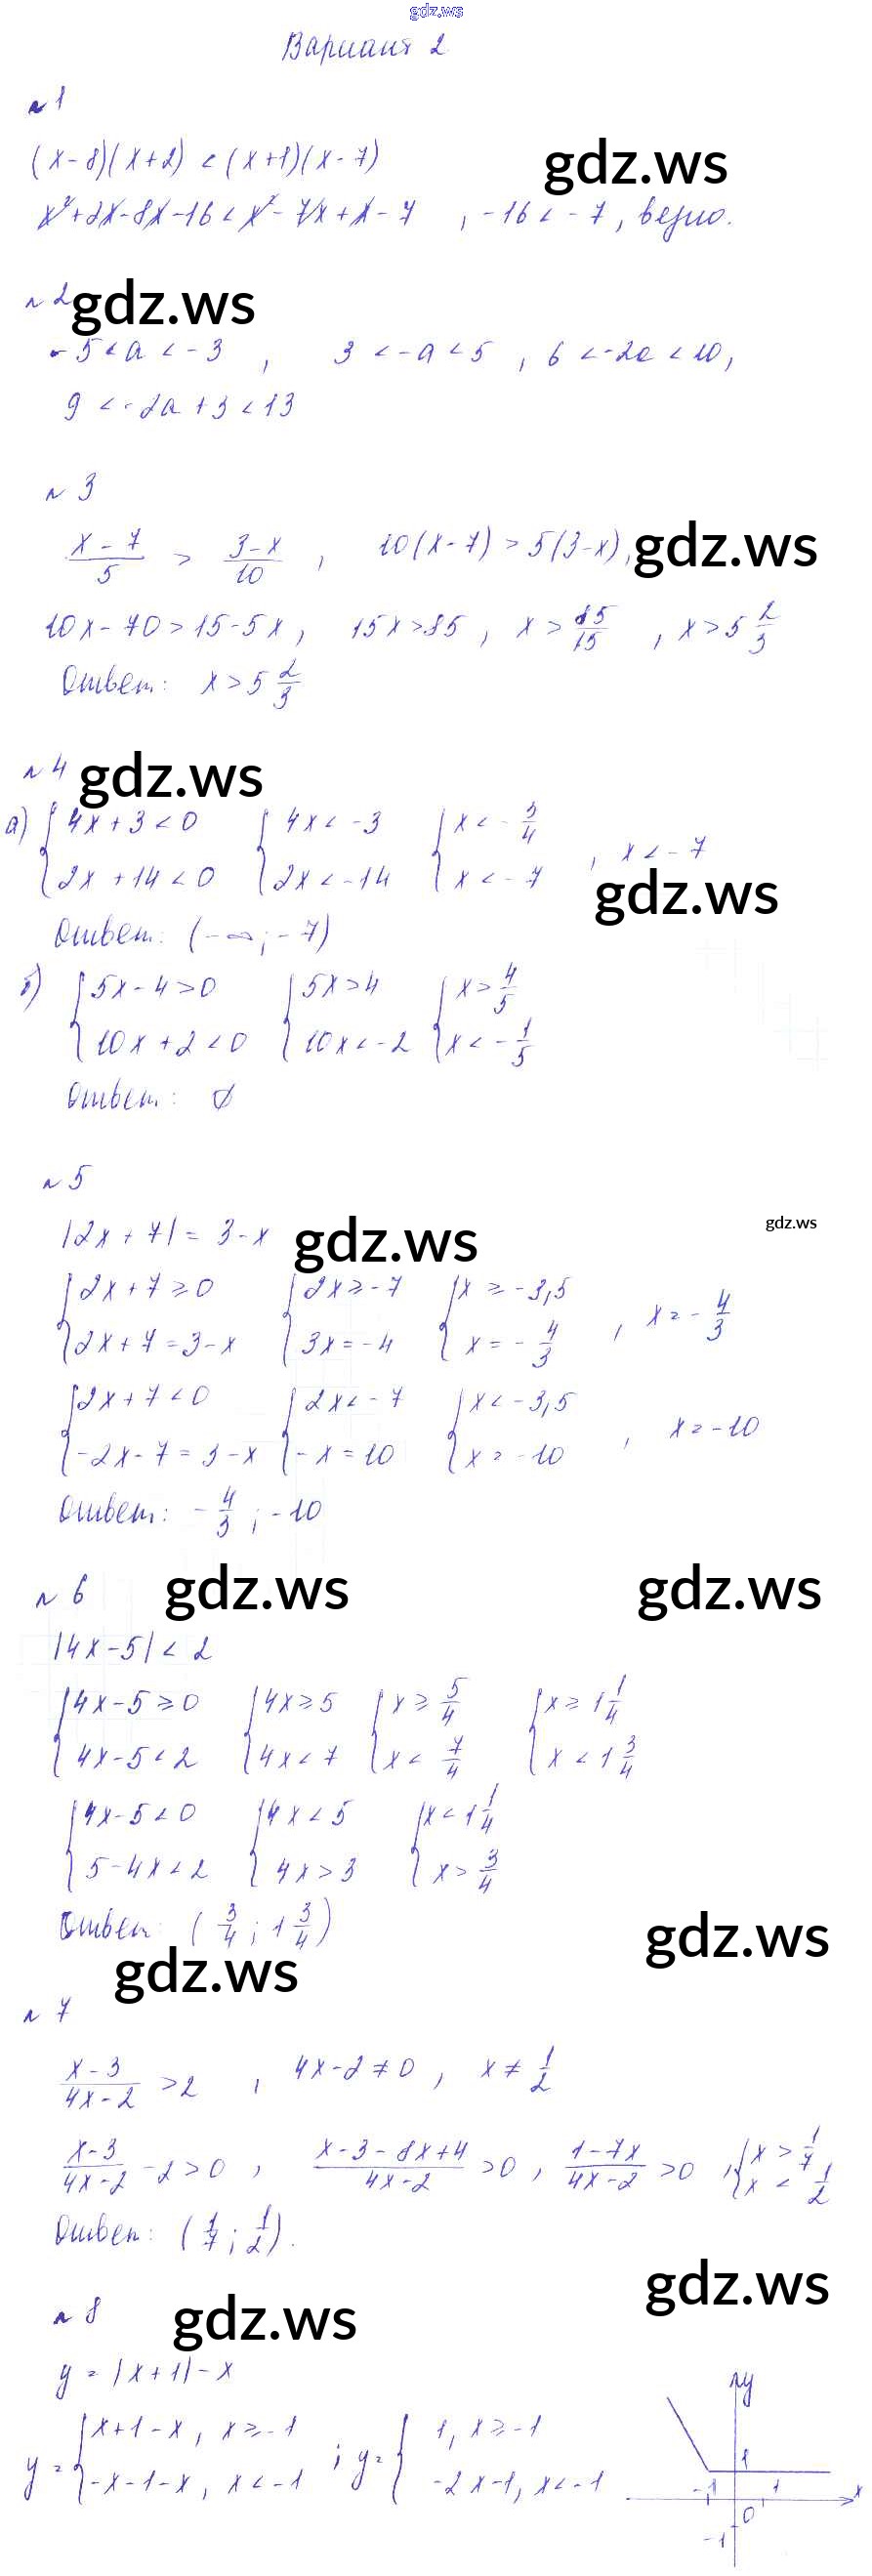 gdz.ws
Вариант 2
№1
(x-8)(x+2) < (x+1)(x-7) gdz.ws
x²+2x-8x-16 < x²-7x+x-7 , -16 < -7, верно.
№2 gdz.ws
-5 < a < -3 , 3 < -a < 5 , 6 < -2a < 10,
9 < -2a + 3 < 13
№3
(x-7)/5 > (3-x)/10 , 10(x-7) > 5(3-x), gdz.ws
10x-70 > 15-5x, 15x > 85, x > 85/15 , x > 5 2/3
Ответ: x > 5 2/3
№4 gdz.ws
а) {4x+3<0 {4x<-3 {x<-3/4
{2x+14<0 {2x<-14 {x<-7 , x<-7
gdz.ws
Ответ: (-∞; -7)
б) {5x-4>0 {5x>4 {x>4/5
{10x+2<0 {10x<-2 {x<-1/5
Ответ: ∅
№5
|2x+7| = 3-x gdz.ws gdz.ws
{2x+7≥0 {2x≥-7 {x≥-3,5
{2x+7=3-x {3x=-4 {x=-4/3 , x=-4/3
{2x+7<0 {2x<-7 {x<-3,5
{-2x-7=3-x {-x=10 {x=-10 , x=-10
Ответ: -4/3; -10
№6 gdz.ws gdz.ws
|4x-5| < 2
{4x-5≥0 {4x≥5 {x≥5/4 {x≥1 1/4
{4x-5<2 {4x<7 {x<7/4 {x<1 3/4
{4x-5<0 {4x<5 {x<1 1/4
{5-4x<2 {4x>3 {x>3/4
Ответ: (3/4; 1 3/4) gdz.ws
gdz.ws
№7
(x-3)/(4x-2) > 2 , 4x-2≠0, x≠1/2
(x-3)/(4x-2) - 2 > 0 , (x-3-8x+4)/(4x-2) > 0, (1-7x)/(4x-2) > 0 , {x > 1/7
{x < 1/2
Ответ: (1/7; 1/2).
gdz.ws
№8 gdz.ws
y = |x+1| - x
y = {x+1-x, x≥-1 ; y = {1, x≥-1
{-x-1-x, x<-1 {-2x-1, x<-1
y
1
-1 1 x
0
-1